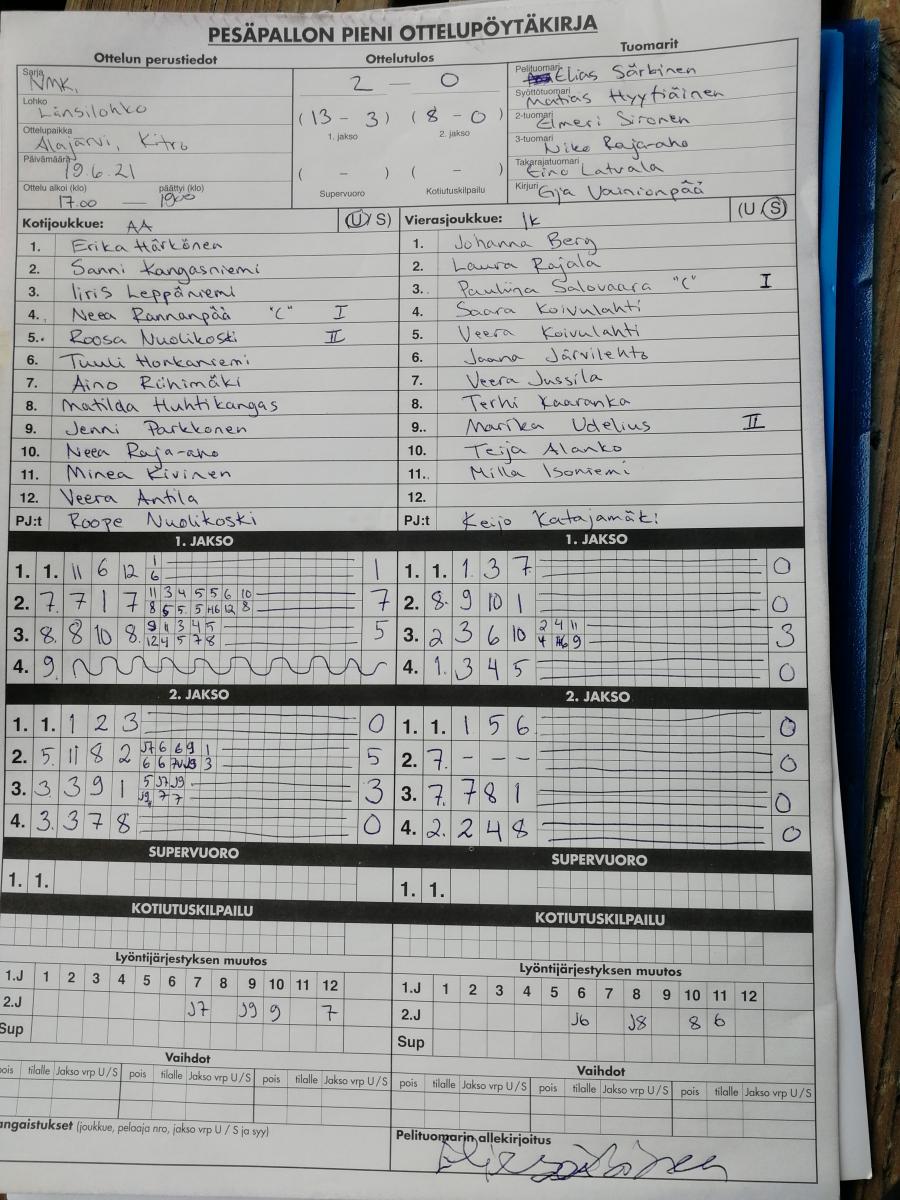 PESÄPALLON PIENI OTTELUPÖYTÄKIRJA
Ottelun perustiedot Ottelutulos Tuomarit
Sarja NMK,
Lohko Länsilohko
Ottelupaikka Alajärvi, Kitro
Päivämäärä 19.6.21
Ottelu alkoi (klo) päättyi (klo)
17.00 — 1900
2 — 0
(13 - 3) (8 - 0)
1. jakso 2. jakso
( - ) ( - )
Supervuoro Kotiutuskilpailu
Pelituomari Elias Särkinen
Syöttötuomari Matias Hyytiäinen
2-tuomari Elmeri Sironen
3-tuomari Niko Raja-aho
Takarajatuomari Eino Latvala
Kirjuri Eija Vainionpää
Kotijoukkue: AA (U/S)
1. Erika Härkönen
2. Sanni Kangasniemi
3. Iiris Leppäniemi
4. Neea Rannanpää "C" I
5. Roosa Nuolikoski II
6. Tuuli Honkaniemi
7. Aino Riihimäki
8. Matilda Huhtikangas
9. Jenni Parkkonen
10. Neea Raja-aho
11. Minea Kivinen
12. Veera Antila
PJ:t Roope Nuolikoski
Vierasjoukkue: IK (U/S)
1. Johanna Berg
2. Laura Rajala
3. Pauliina Salovaara "C" I
4. Saara Koivulahti
5. Veera Koivulahti
6. Jaana Järvilehto
7. Veera Jussila
8. Terhi Kaaranka
9. Marika Udelius II
10. Teija Alanko
11. Milla Isoniemi
12.
PJ:t Keijo Katajamäki
1. JAKSO
1. 1. 11 6 12 1 1
6
2. 7. 7 1 7 11 3 4 5 5 6 10 7
8 5 5 5 12 8
3. 8. 8 10 8. 9 11 3 4 5 5
12 4 5 7 8
4. 9.
2. JAKSO
1. 1. 1 2 3 0
2. 5. 11 8 2 J7 6 6 9 1 5
6 6 J9 3
3. 3 3 9 1 5 J7 J9 3
J9 7 7
4. 3. 3 7 8 0
SUPERVUORO
1. 1.
KOTIUTUSKILPAILU
1. JAKSO
1. 1. 1 3 7 0
2. 8. 9 10 1 0
3. 2 3 6 10 2 4 11 3
4 9
4. 1. 3 4 5 0
2. JAKSO
1. 1. 1 5 6 0
2. 7. - - - 0
3. 7. 7 8 1 0
4. 2. 2 4 8 0
SUPERVUORO
1. 1.
KOTIUTUSKILPAILU
Lyöntijärjestyksen muutos
1.J 1 2 3 4 5 6 7 8 9 10 11 12
2.J J7 J9 9 7
Sup
Vaihdot
pois tilalle Jakso vrp U/S pois tilalle Jakso vrp U/S pois tilalle Jakso vrp U/S
angaistukset (joukkue, pelaaja nro, jakso vrp U / S ja syy)
Lyöntijärjestyksen muutos
1.J 1 2 3 4 5 6 7 8 9 10 11 12
2.J J6 J8 8 6
Sup
Vaihdot
pois tilalle Jakso vrp U/S pois tilalle Jakso vrp U/S pois tilalle Jakso vrp U/S
Pelituomarin allekirjoitus